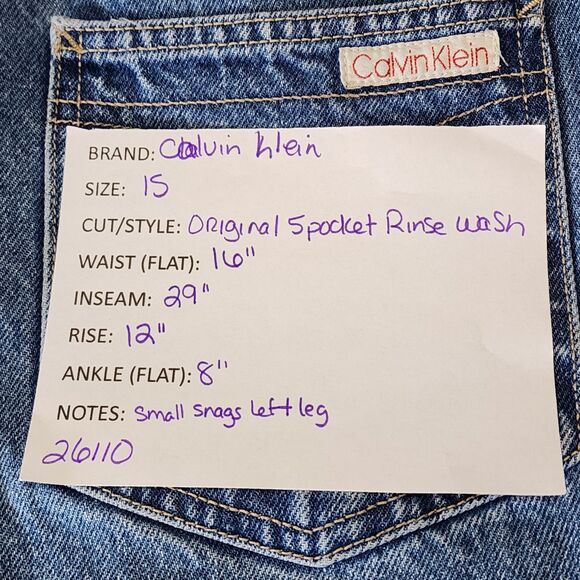 Calvin Klein
BRAND: Calvin Klein
SIZE: 15
CUT/STYLE: Original 5pocket Rinse wash
WAIST (FLAT): 16"
INSEAM: 29"
RISE: 12"
ANKLE (FLAT): 8"
NOTES: Small snags Left leg
26110